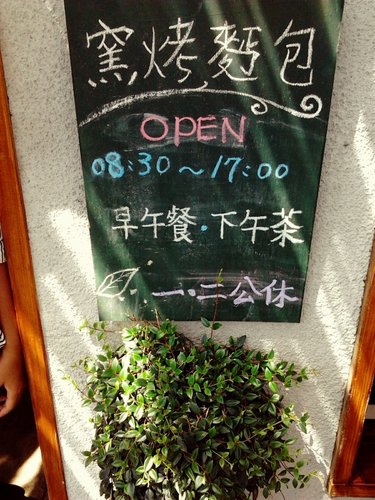 窯烤麵包
OPEN
08:30~17:00
早午餐·下午茶
一·二公休